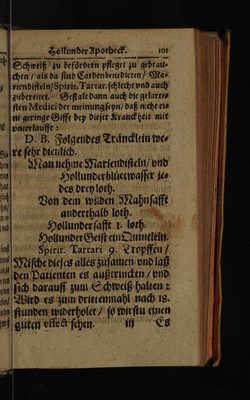 Hollunder Apotheck. 101
Schweiß zu befördern pfleget zu gebrau-
chen / als da sind Cardenbenedicten / Ma-
riendisteln / Spirit. Tartar. schlecht und auch
zubereitet. Gestalt dann auch die gelarte-
sten Medici der meinung seyn / daß nicht ei-
ne geringe Gifft bey dieser Kranckheit mit
unterlauffe:
D. B. Folgendes Träncklein we-
re sehr dienlich.
Man nehme Mariendisteln / und
Hollunderblüetwasser je-
des drey loth.
Von dem wilden Mahnsafft
anderthalb loth.
Hollundersafft 1. loth.
Hollunder Geist ein Quintlein.
Spirit. Tartari 9. Tropffen /
Mische dieses alles zusamen / und laß
den Patienten es außtrincken / und
sich darauff zum Schweiß halten:
Wird es zum drittenmahl nach 18.
stunden widerholet / so wirstu einen
guten effect sehen. in Es